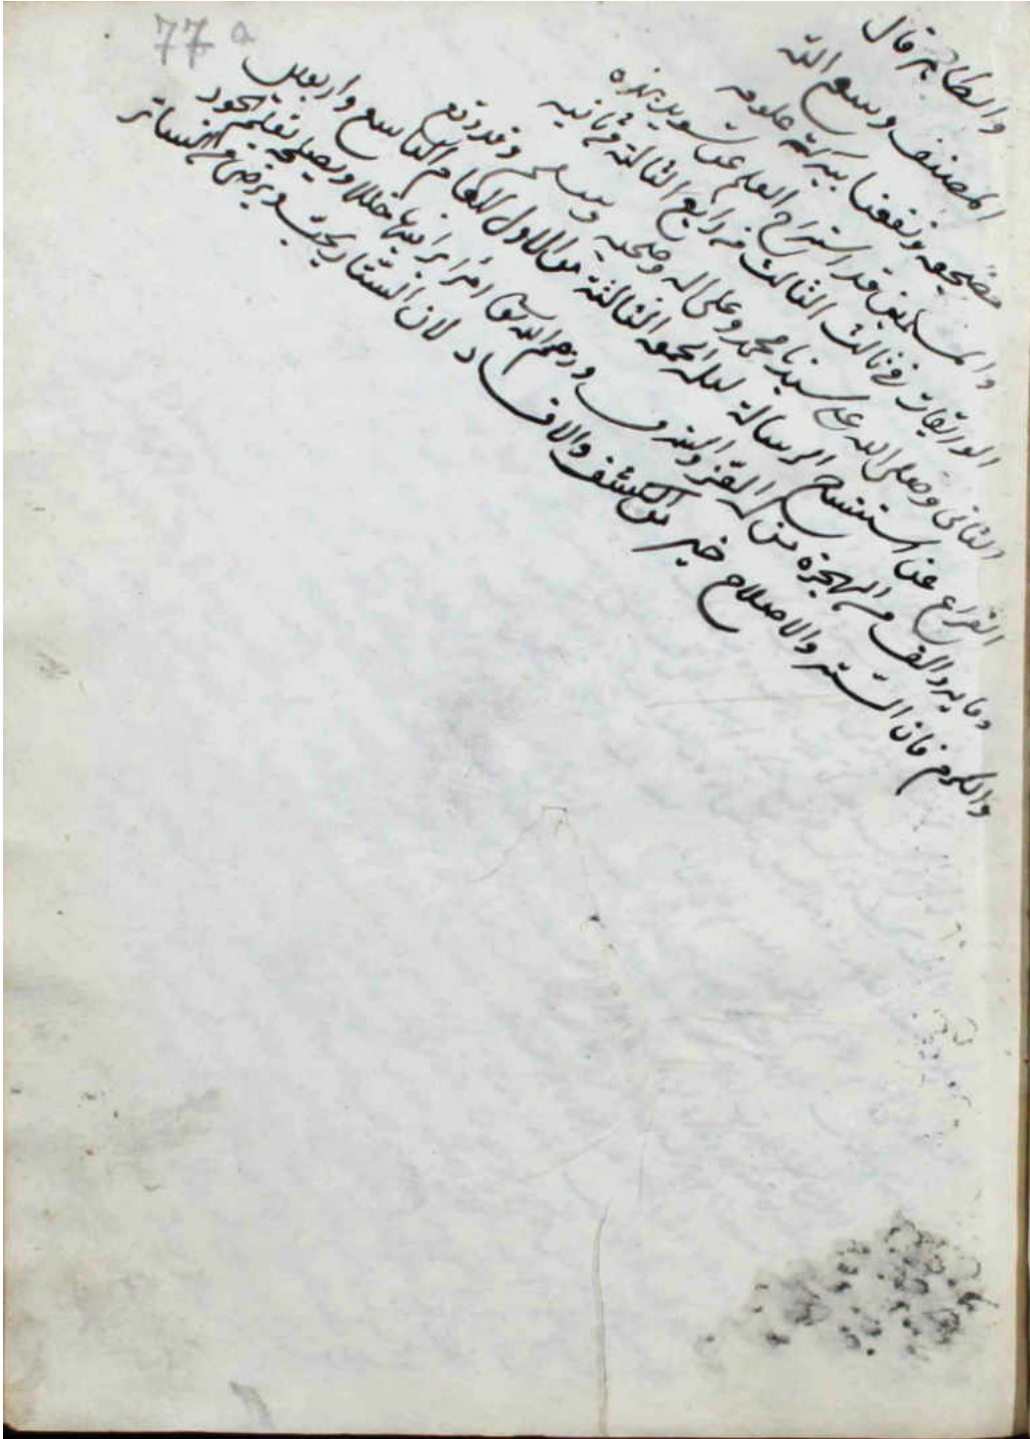 77a
والطاهر قال
المصنف وسع الله
مضجعه ونفعنا ببركة علومه
والمسلمين قد استراح القلم عن تسويد هذه
الوريقات في ثالث الثالث من رابع الثالثة وثمانية
الثاني وصلى الله على سيدنا محمد وعلى اله وصحبه وسلم وقد وقع
الفراغ عن استنساخ الرسالة ليلة الجمعة الثالثة من الاول للعام التاسع واربعين
ومايه والف من الهجرة من له العز والشرف ورحم الله تعالى امرأ يرا فيها خللا ويصلحه بقلم الجود
والكرم فان الستر والاصلاح خير من الكشف والافساد لان الستار يحب ويرضى الساتر